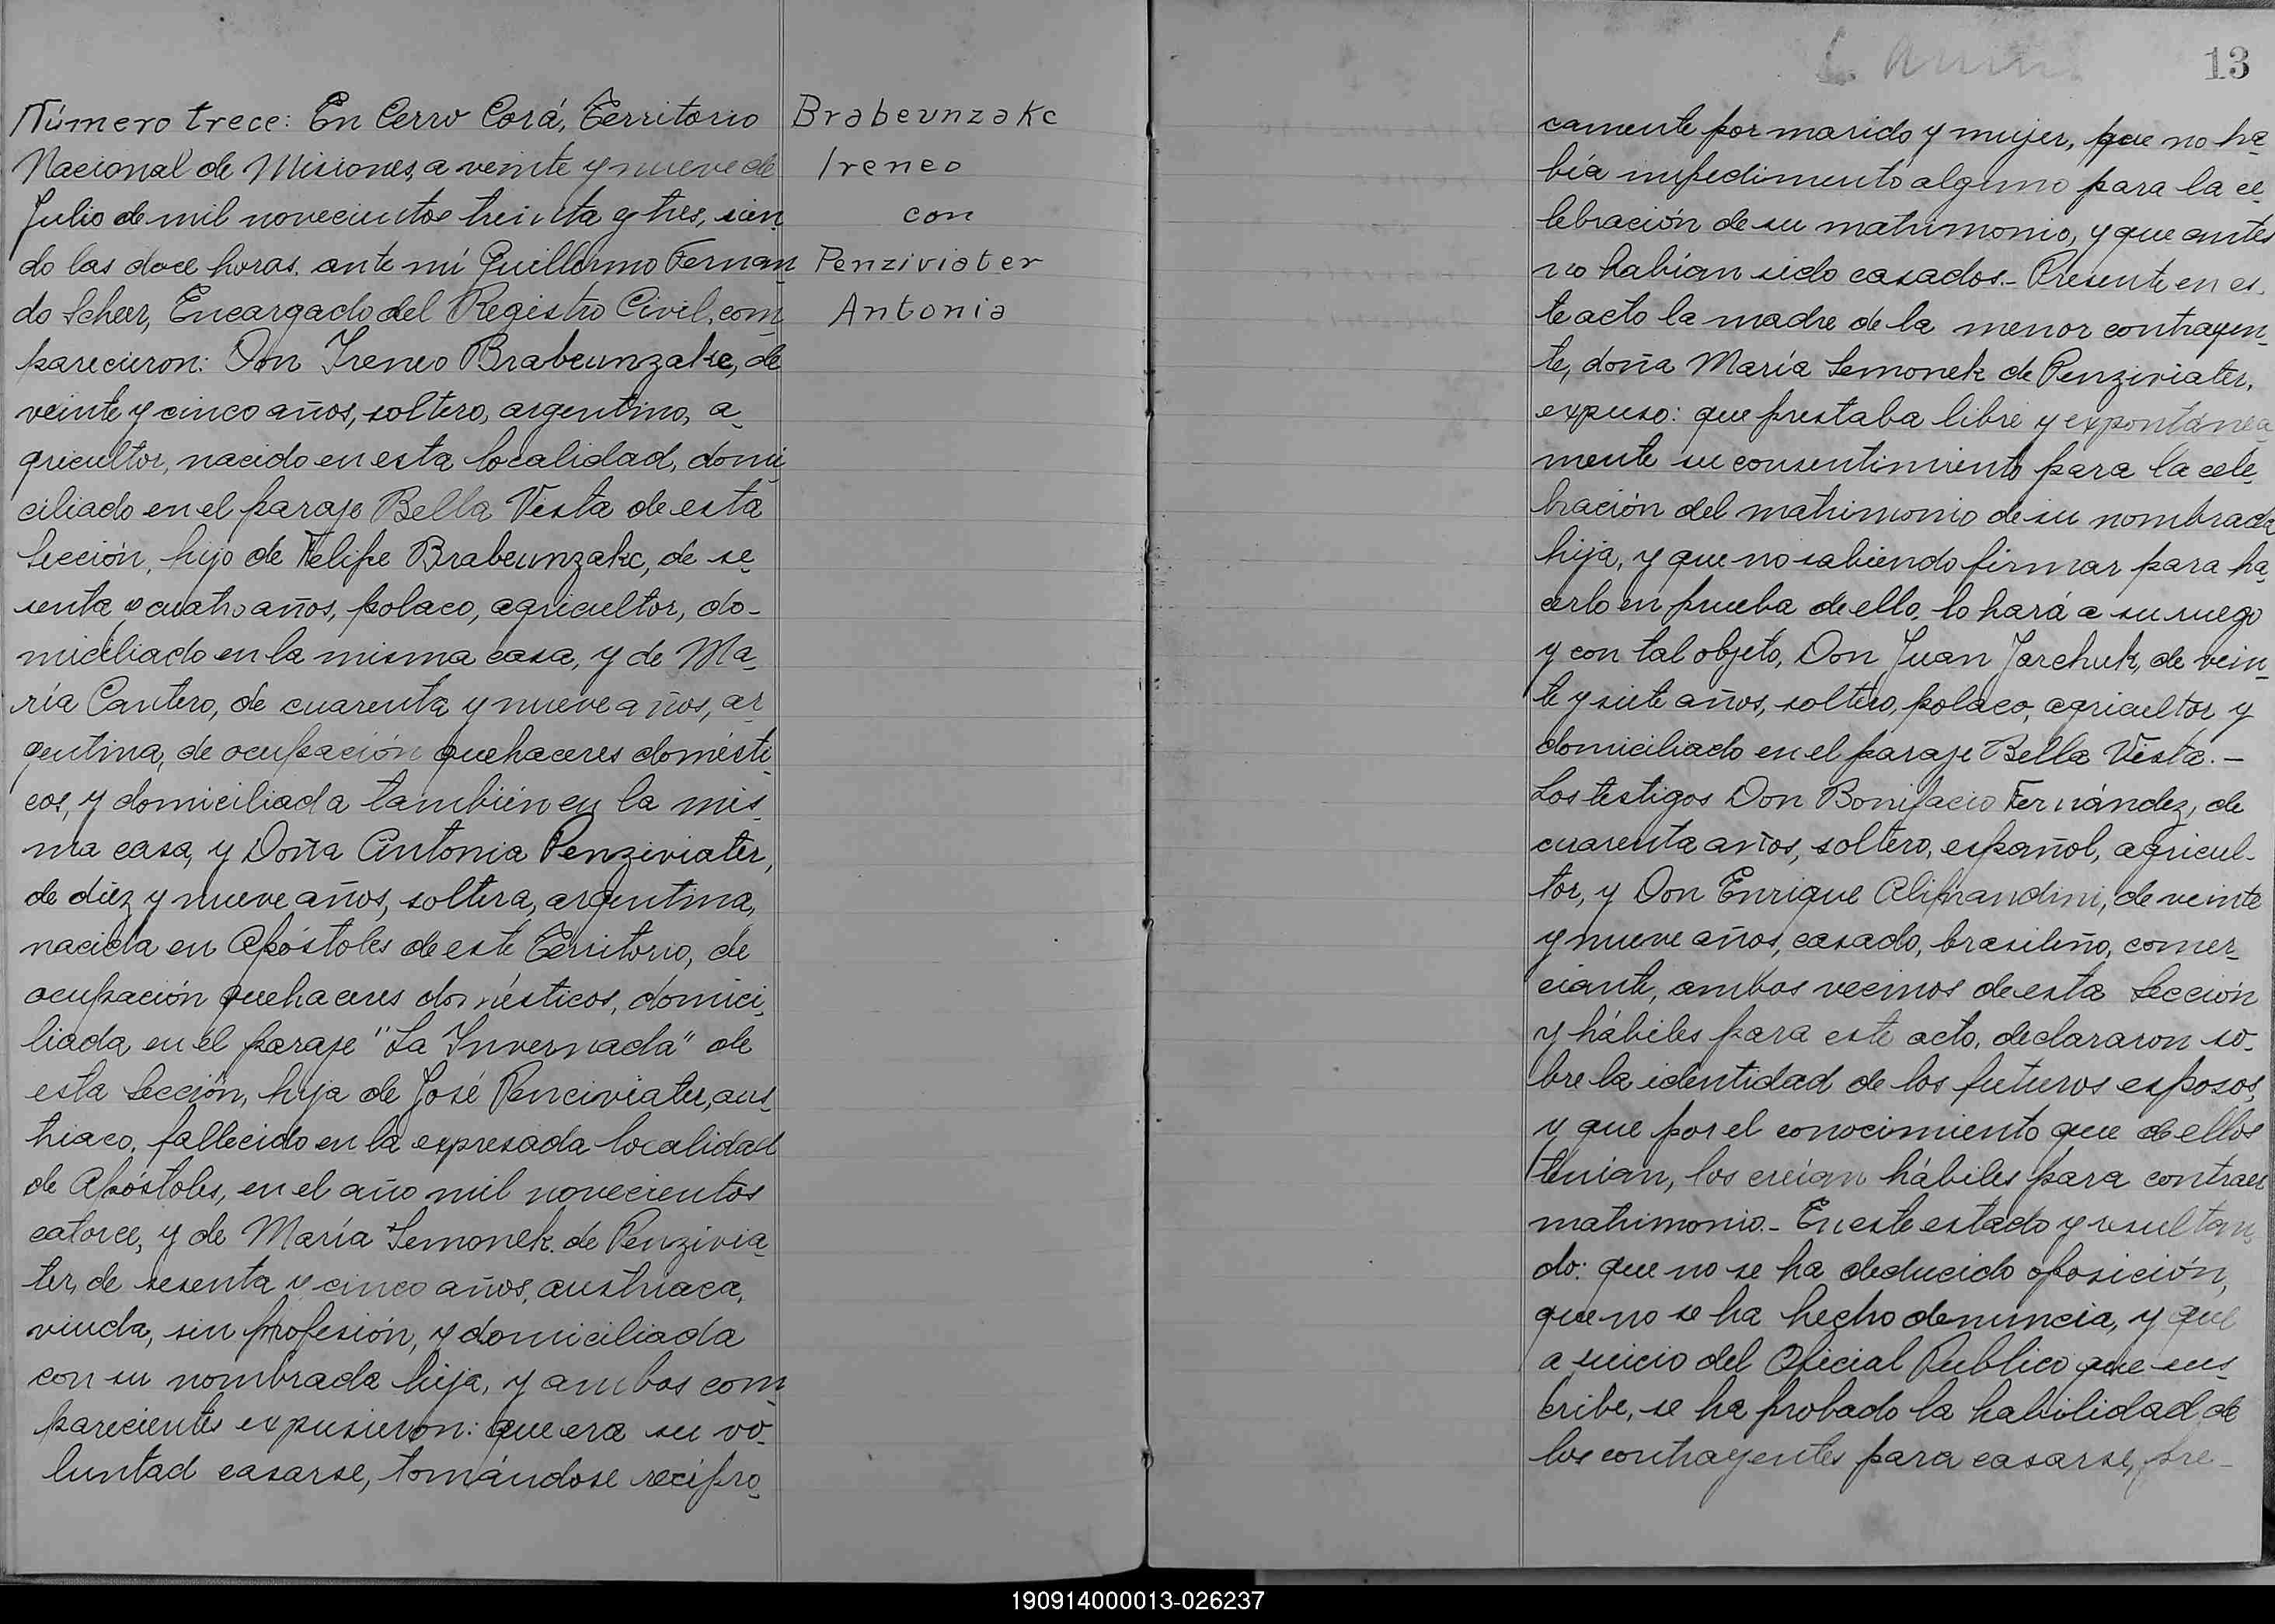 Número trece: En Cerro Corá, Territorio
Nacional de Misiones, a veinte y nueve de
Julio de mil novecientos treinta y tres, sien-
do las doce horas, ante mí Guillermo Fernan-
do Scheer, Encargado del Registro Civil, com-
parecieron: Don Ireneo Brabeunzakc, de
veinte y cinco años, soltero, argentino, a-
gricultor, nacido en esta localidad, domi-
ciliado en el paraje Bella Vista de esta
Sección, hijo de Felipe Brabeunzakc, de se-
senta y cuatro años, polaco, agricultor, do-
miciliado en la misma casa, y de Ma-
ría Cantero, de cuarenta y nueve años, ar-
gentina, de ocupación quehaceres domésti-
cos, y domiciliada también en la mis-
ma casa, y Doña Antonia Penziviater,
de diez y nueve años, soltera, argentina,
nacida en Apóstoles de este Territorio, de
ocupación quehaceres domésticos, domici-
liada en el paraje "La Invernada" de
esta Sección, hija de José Penciviater, aus-
triaco, fallecido en la expresada localidad
de Apóstoles, en el año mil novecientos
catorce, y de María Semonek de Penzivia-
ter, de sesenta y cinco años, austriaca,
viuda, sin profesión, y domiciliada
con su nombrada hija, y ambos com-
parecientes expusieron: que era su vo-
luntad casarse, tomándose recípro-
Brabeunzakc
Ireneo
con
Penziviater
Antonia
13
camente por marido y mujer, que no ha-
bía impedimento alguno para la ce-
lebración de su matrimonio, y que antes
no habían sido casados.- Presente en es-
te acto la madre de la menor contrayen-
te, doña María Semonek de Penziviater,
expuso: que prestaba libre y expontánea
mente su consentimiento para la cele-
bración del matrimonio de su nombrada
hija, y que no sabiendo firmar para ha-
cerlo en prueba de ello, lo hará a su ruego
y con tal objeto, Don Juan Jarchuk, de vein-
te y siete años, soltero, polaco, agricultor y
domiciliado en el paraje Bella Vista.-
Los testigos Don Bonifacio Fernández, de
cuarenta años, soltero, español, agricul-
tor, y Don Enrique Aliprandini, de veinte
y nueve años, casado, brasileño, comer-
ciante, ambos vecinos de esta Sección
y hábiles para este acto, declararon so-
bre la identidad de los futuros esposos,
y que por el conocimiento que de ellos
tenían, los creían hábiles para contraer
matrimonio.- En este estado y resultan-
do: que no se ha deducido oposición,
que no se ha hecho denuncia, y que
a juicio del Oficial Publico que sus-
cribe, se ha probado la habilidad de
los contrayentes para casarse, pre-
190914000013-026237